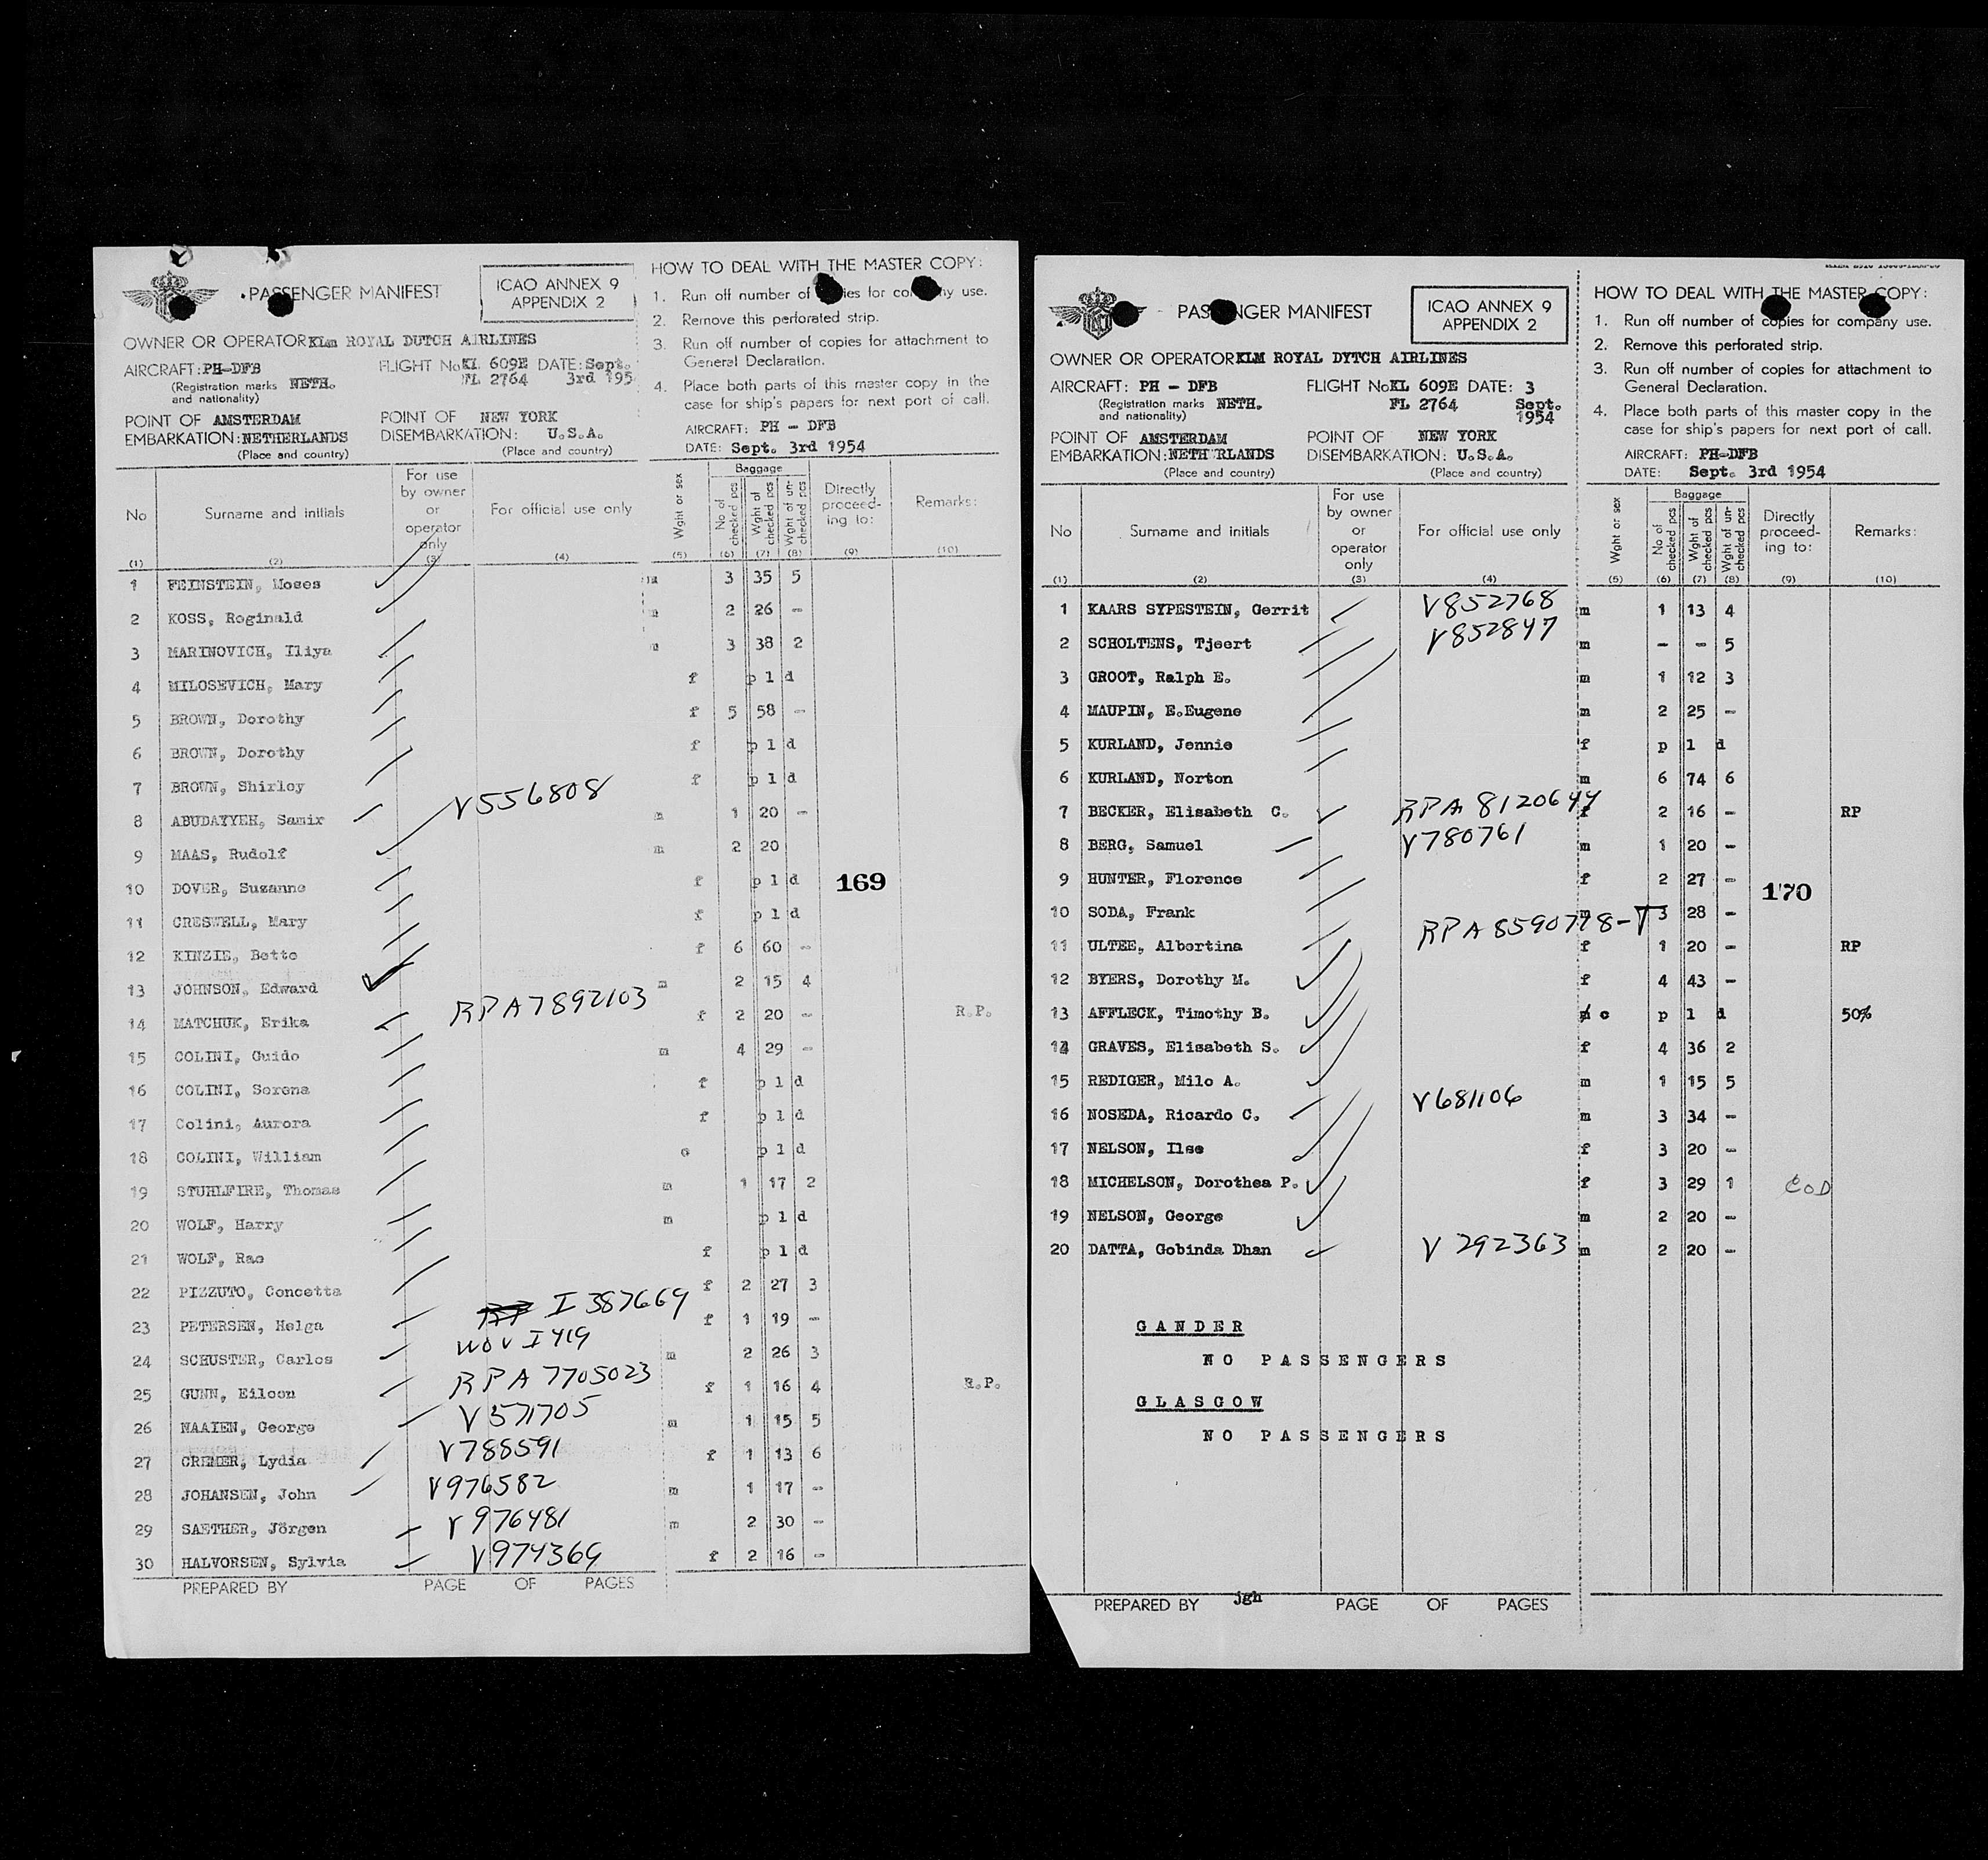 PASSENGER MANIFEST
ICAO ANNEX 9
APPENDIX 2
OWNER OR OPERATOR KLm ROYAL DUTCH AIRLINES
AIRCRAFT: PH-DFB FLIGHT No KL 609E DATE: Sept.
(Registration marks NETH. FL 2764 3rd 195
and nationality)
POINT OF AMSTERDAM POINT OF NEW YORK
EMBARKATION: NETHERLANDS DISEMBARKATION: U.S.A.
(Place and country) (Place and country)
HOW TO DEAL WITH THE MASTER COPY:
1. Run off number of ies for co y use.
2. Remove this perforated strip.
3. Run off number of copies for attachment to
General Declaration.
4. Place both parts of this master copy in the
case for ship's papers for next port of call.
AIRCRAFT: PH - DFB
DATE: Sept. 3rd 1954
No Surname and initials For use by owner or operator only For official use only Wght or sex Baggage No of checked pcs Wght of checked pcs Wght of un-checked pcs Directly proceed-ing to: Remarks:
(1) (2) (3) (4) (5) (6) (7) (8) (9) (10)
1 FEINSTEIN, Moses m 3 35 5
2 KOSS, Roginald m 2 26 -
3 MARINOVICH, Iliya m 3 38 2
4 MILOSEVICH, Mary f p l d
5 BROWN, Dorothy f 5 58 -
6 BROWN, Dorothy f p l d
7 BROWN, Shirley f p l d
8 ABUDAYYEH, Samir V556808 m 1 20 -
9 MAAS, Rudolf m 2 20
10 DOVER, Suzanne f p l d 169
11 CRESWELL, Mary f p l d
12 KINZIE, Bette f 6 60 -
13 JOHNSON, Edward m 2 15 4
14 MATCHUK, Erika RPA7892103 f 2 20 - R.P.
15 COLINI, Guido m 4 29 -
16 COLINI, Serena f p l d
17 Colini, Aurora f p l d
18 COLINI, William c p l d
19 STUHLFIRE, Thomas m 1 17 2
20 WOLF, Harry m p l d
21 WOLF, Rae f p l d
22 PIZZUTO, Concetta f 2 27 3
23 PETERSEN, Helga I 387669 f 1 19 -
24 SCHUSTER, Carlos NOV I 419 m 2 26 3
25 GUNN, Eileen RPA 7705023 f 1 16 4 R.P.
26 NAAIEN, George V571705 m 1 15 5
27 CREMER, Lydia V788591 f 1 13 6
28 JOHANSEN, John V976582 m 1 17 -
29 SAETHER, Jörgen V976481 m 2 30 -
30 HALVORSEN, Sylvia V974369 f 2 16 -
PREPARED BY PAGE OF PAGES
PASSENGER MANIFEST
ICAO ANNEX 9
APPENDIX 2
OWNER OR OPERATOR KLM ROYAL DYTCH AIRLINES
AIRCRAFT: PH - DFB FLIGHT No KL 609E DATE: 3
(Registration marks NETH. FL 2764 Sept.
and nationality) 1954
POINT OF AMSTERDAM POINT OF NEW YORK
EMBARKATION: NETH RLANDS DISEMBARKATION: U.S.A.
(Place and country) (Place and country)
HOW TO DEAL WITH THE MASTER COPY:
1. Run off number of copies for company use.
2. Remove this perforated strip.
3. Run off number of copies for attachment to
General Declaration.
4. Place both parts of this master copy in the
case for ship's papers for next port of call.
AIRCRAFT: PH-DFB
DATE: Sept. 3rd 1954
No Surname and initials For use by owner or operator only For official use only Wght or sex Baggage No of checked pcs Wght of checked pcs Wght of un-checked pcs Directly proceed-ing to: Remarks:
(1) (2) (3) (4) (5) (6) (7) (8) (9) (10)
1 KAARS SYPESTEIN, Gerrit V852768 m 1 13 4
2 SCHOLTENS, Tjeert V852847 m - - 5
3 GROOT, Ralph E. m 1 12 3
4 MAUPIN, E.Eugene m 2 25 -
5 KURLAND, Jennie f p l d
6 KURLAND, Norton m 6 74 6
7 BECKER, Elisabeth C. RPA 8120644 f 2 16 - RP
8 BERG, Samuel V780761 m 1 20 -
9 HUNTER, Florence f 2 27 - 170
10 SODA, Frank m 3 28 -
11 ULTEE, Albertina RPA 8590778-T f 1 20 - RP
12 BYERS, Dorothy M. f 4 43 -
13 AFFLECK, Timothy B. c p l d 50%
14 GRAVES, Elisabeth S. f 4 36 2
15 REDIGER, Milo A. m 1 15 5
16 NOSEDA, Ricardo C. V681106 m 3 34 -
17 NELSON, Ilse f 3 20 -
18 MICHELSON, Dorothea P. f 3 29 1 COD
19 NELSON, George m 2 20 -
20 DATTA, Gobinda Dhan V 292363 m 2 20 -
GANDER
NO PASSENGERS
GLASGOW
NO PASSENGERS
PREPARED BY jgh PAGE OF PAGES